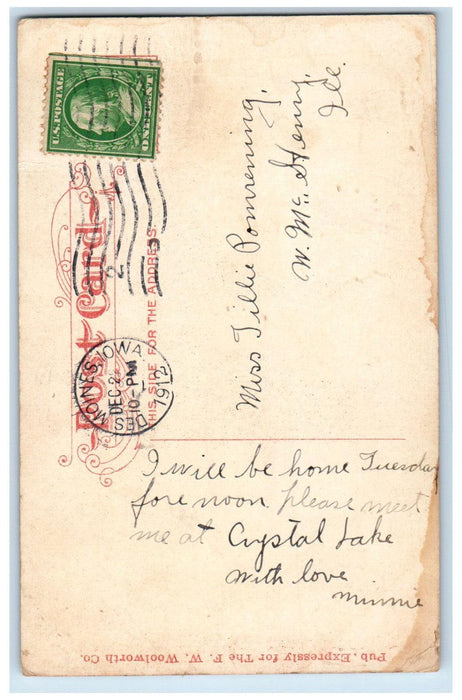 U.S. POSTAGE
ONE CENT
Post Card
THIS SIDE FOR THE ADDRESS.
DES MOINES, IOWA
DEC 2
10-PM
1912
2
Miss Tillie Pomrening,
W. Mc Henry,
Ill.
I will be home Tuesday
fore noon please meet
me at Crystal Lake
with love
Minnie
Pub. Expressly for The F. W. Woolworth Co.